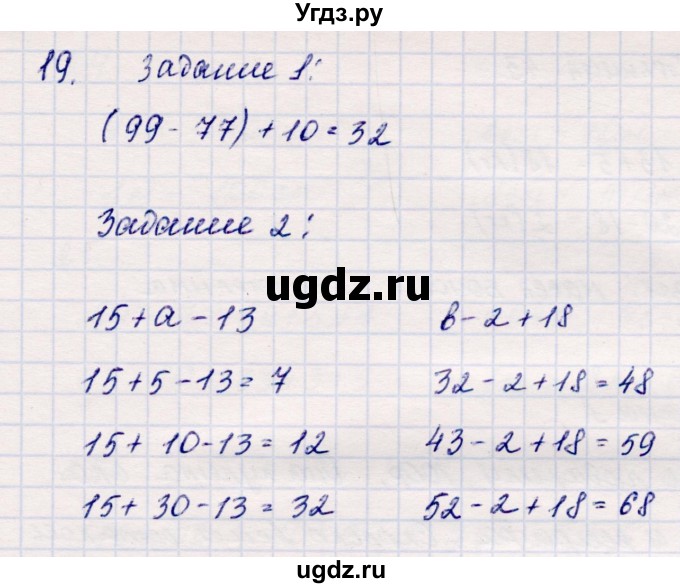 Угдз.ру
19. Задание 1:
(99 - 77) + 10 = 32
Задание 2:
ugdz.ru
15 + a - 13
15 + 5 - 13 = 7
15 + 10 - 13 = 12
15 + 30 - 13 = 32
в - 2 + 18
32 - 2 + 18 = 48
43 - 2 + 18 = 59
52 - 2 + 18 = 68
ugdz.ru